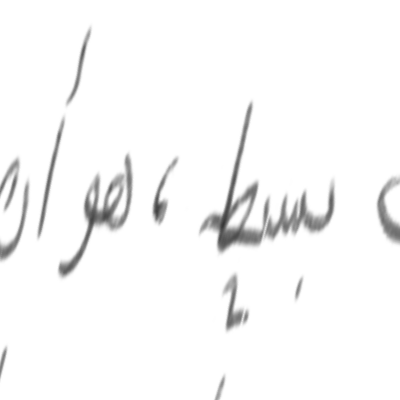 بسيط ، هو أن